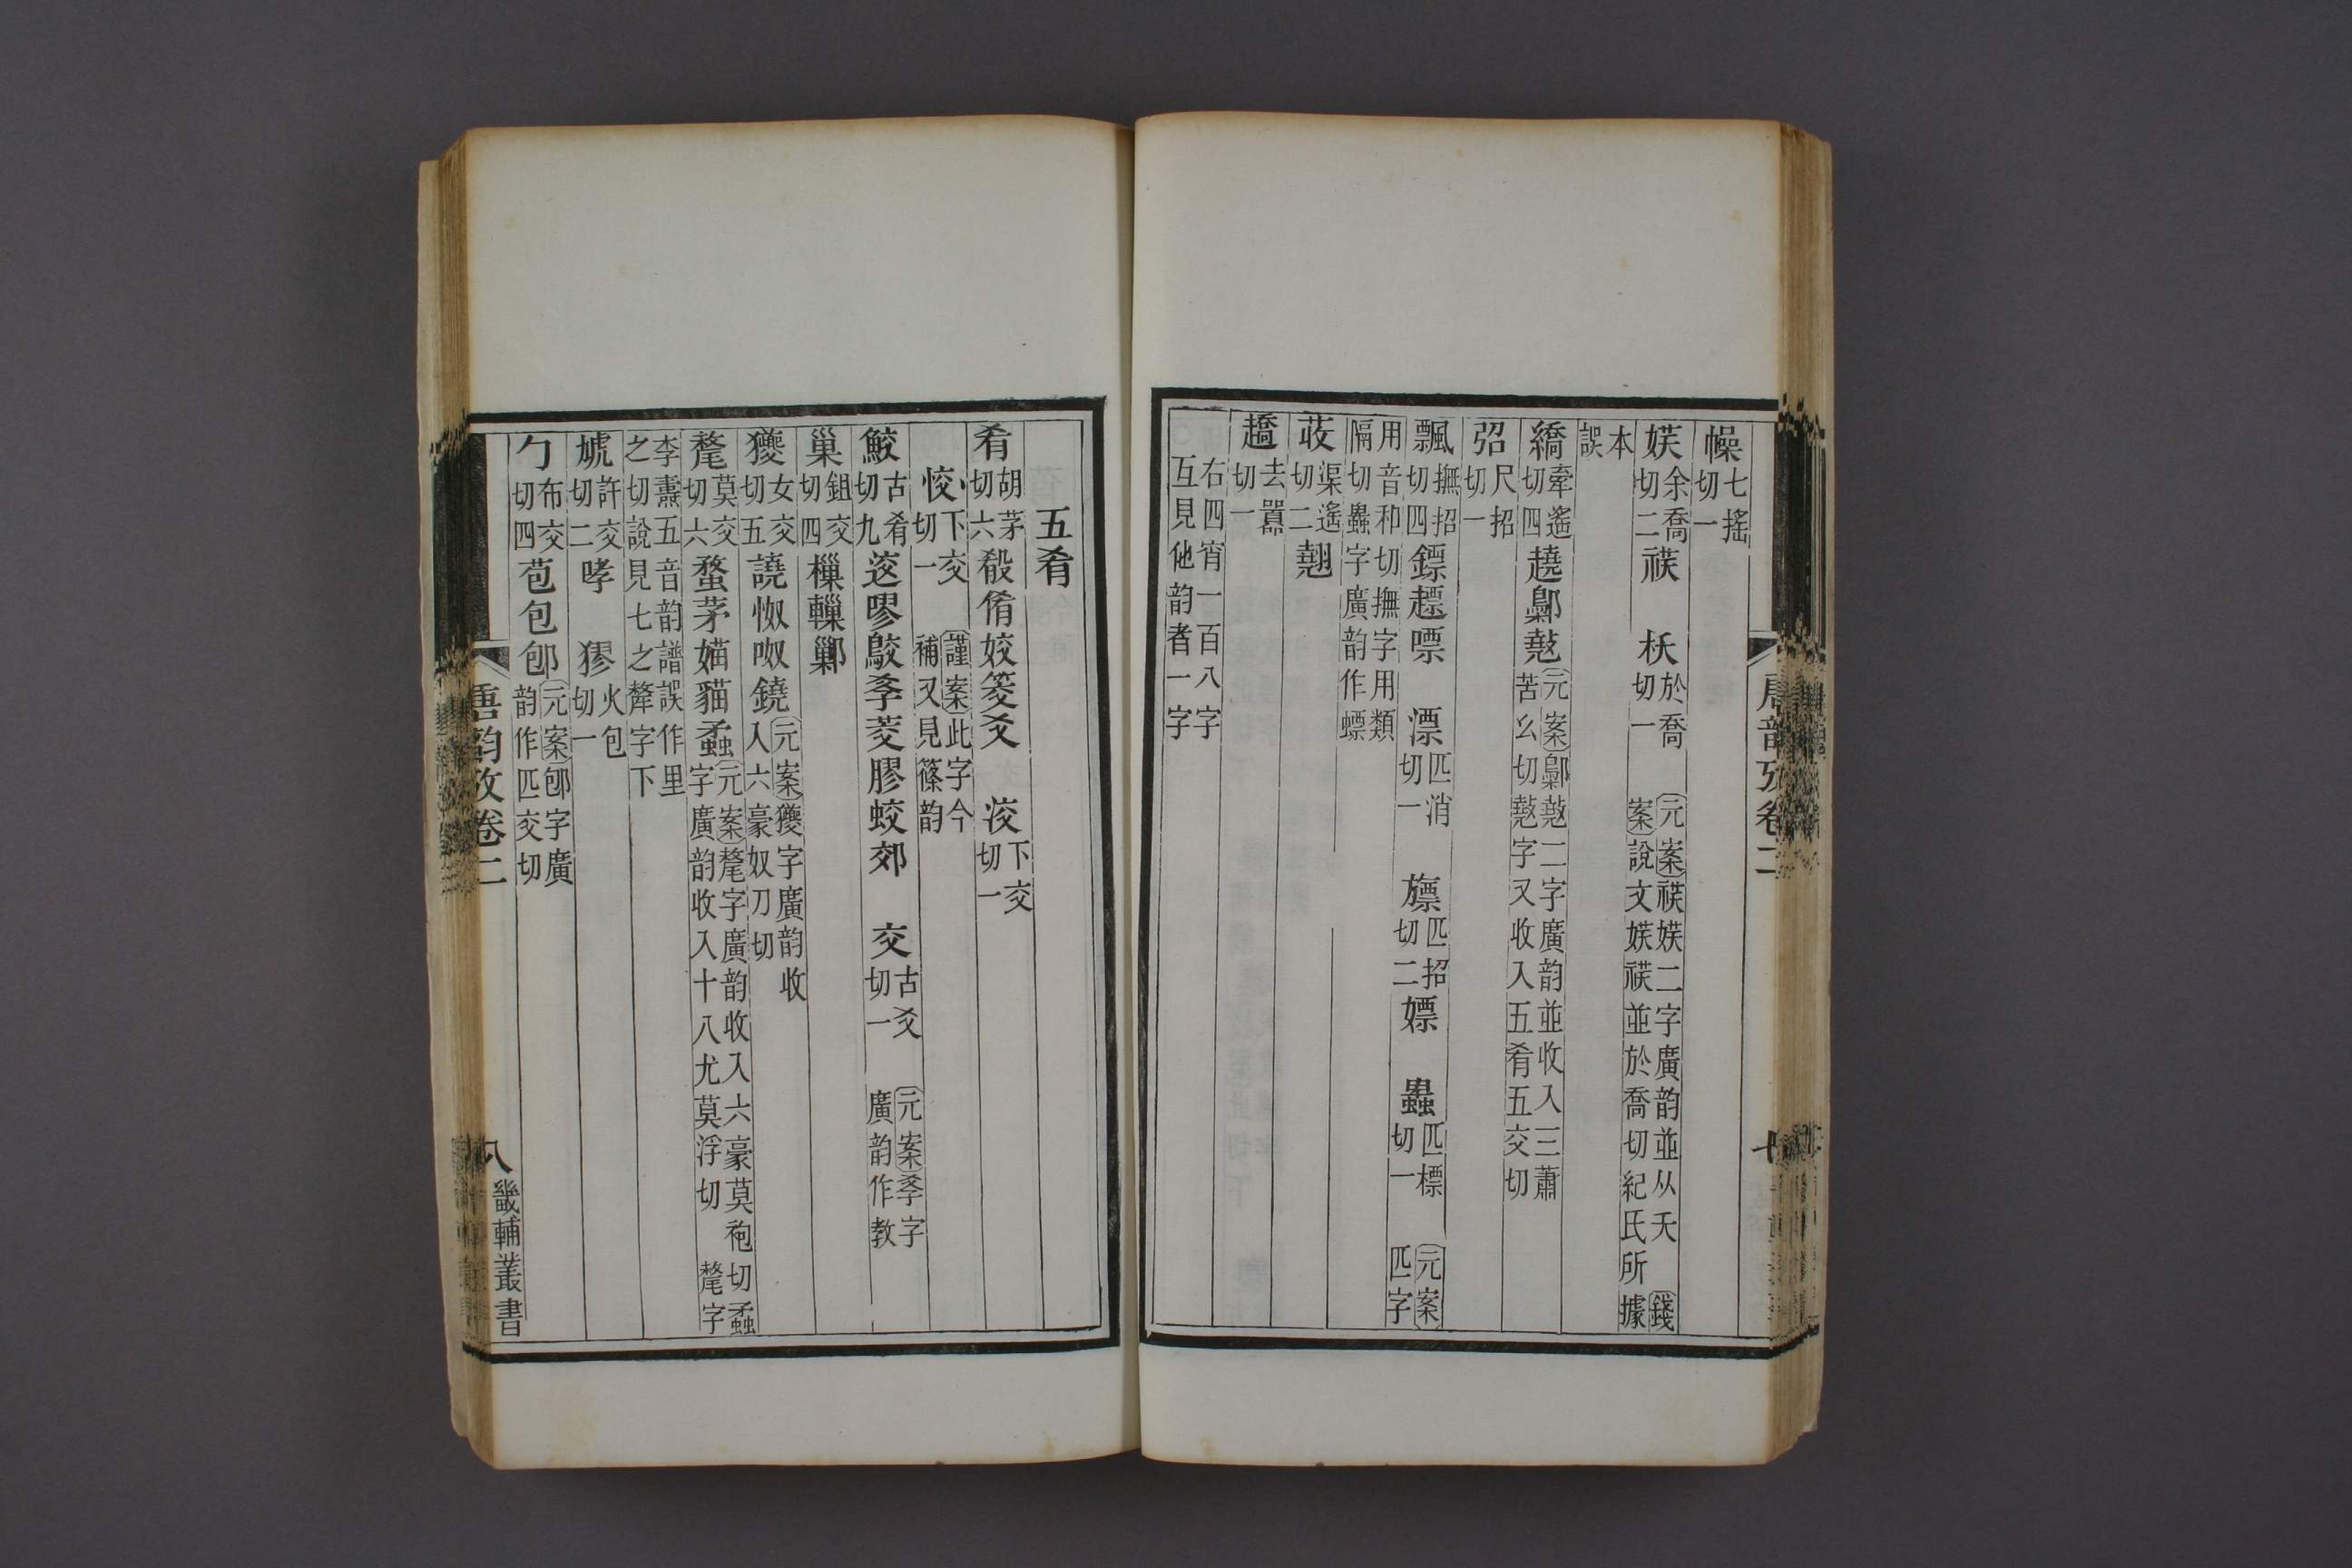 幧七搖切一
媄余喬切二䄃 枖於喬切一 元案䄃媄二字廣韵並从夭 錢案說文媄䄃並於喬切紀氏所據
本誤
繑牽遙切四趬鄡墝元案鄡墝二字廣韵並收入三蕭苦幺切墝字又收入五肴五交切
弨尺招切一
飄撫招切四鏢趮嘌 漂匹消切一 旚匹招切二嫖 蟲匹標切一 元案匹字
用音和切撫字用類隔切蟲字廣韵作螵
荍渠遙切二翹
趫去囂切一
右四宵一百八字
互見他韵者一字
唐韵攷卷二 七
五肴
肴胡茅切六殽倄姣筊爻 洨下交切一
恔下交切一 謹案此字今補又見篠韵
鮫古肴切九迒嘐骹孝茭膠蛟郊 交古爻切一 元案孝字廣韵作教
巢鉏交切四樔轈鄛
獿女交切五譊怓呶鐃元案獿字廣韵收入六豪奴刀切
氂莫交切六蝥茅媌貓蟊元案氂字廣韵收入六豪莫袍切蟊字廣韵收入十八尤莫浮切 氂字
李燾五音韵譜誤作里之切說見七之犛字下
虓許交切二哮 㺒火包切一
勹布交切四苞包郇元案郇字廣韵作匹交切
唐韵攷卷二 八 畿輔叢書